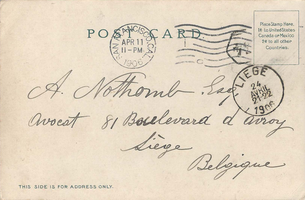 POST CARD
SAN FRANCISCO, CAL.
APR 11
11-PM
1906
Place Stamp here.
to United States
Canada or Mexico
to all other
Countries.
LIEGE
24
AVRIL
1906
A. Nothomb Esq
Avocat 81 Boulevard d'avroy
Liége
Belgique
THIS SIDE IS FOR ADDRESS ONLY.